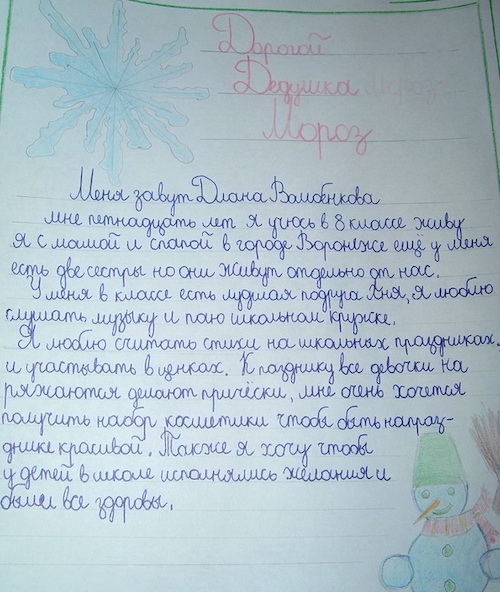 Дорогой
Дедушка
Мороз
Меня зовут Диана
мне петнадцать лет я учюсь в 8 классе живу
я с мамой и спапой в городе Воронеже ещё у меня
есть две сестры но они живут отдельно от нас.
У меня в классе есть лудшая подруга Яня, я люблю
слушать музыку и пою школьном кружке.
Я люблю считать стихи на школьных праздниках.
и участвывать в ценках. К празднику все девочки на
ряжаются делают причёски, мне очень хочется
получить набор косметики чтобы быть напраз-
днике красивой. Также я хочу чтобы
у детей в школе исполнялись желания и
были все здоровы.